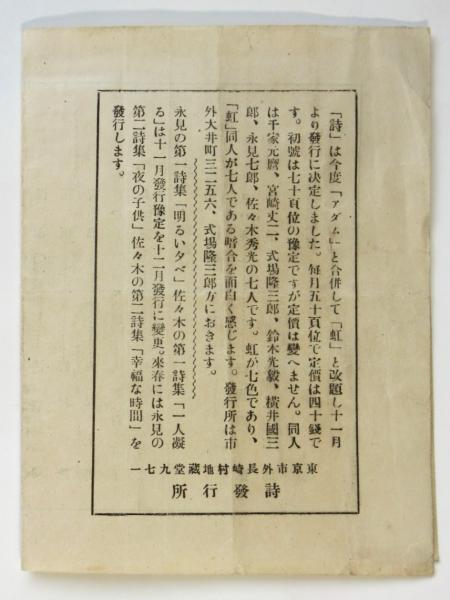 「詩」は今度「アダム」と合併して「虹」と改題し十一月
より發行に決定しました。每月五十頁位で定價は四十錢で
す。初號は七十頁位の豫定ですが定價は變へません。同人
は千家元麿、宮崎丈二、式場隆三郎、鈴木光毅、橫井國三
郎、永見七郎、佐々木秀光の七人です。虹が七色であり、
「虹」同人が七人である暗合を面白く感じます。發行所は市
外大井町三二五六、式場隆三郎方におきます。
永見の第一詩集「明るい夕べ」佐々木の第一詩集「一人凝
る」は十一月發行豫定を十二月發行に變更。來春には永見の
第二詩集「夜の子供」佐々木の第二詩集「幸福な時間」を
發行します。
東京市外長崎村地藏堂九七一
詩發行所